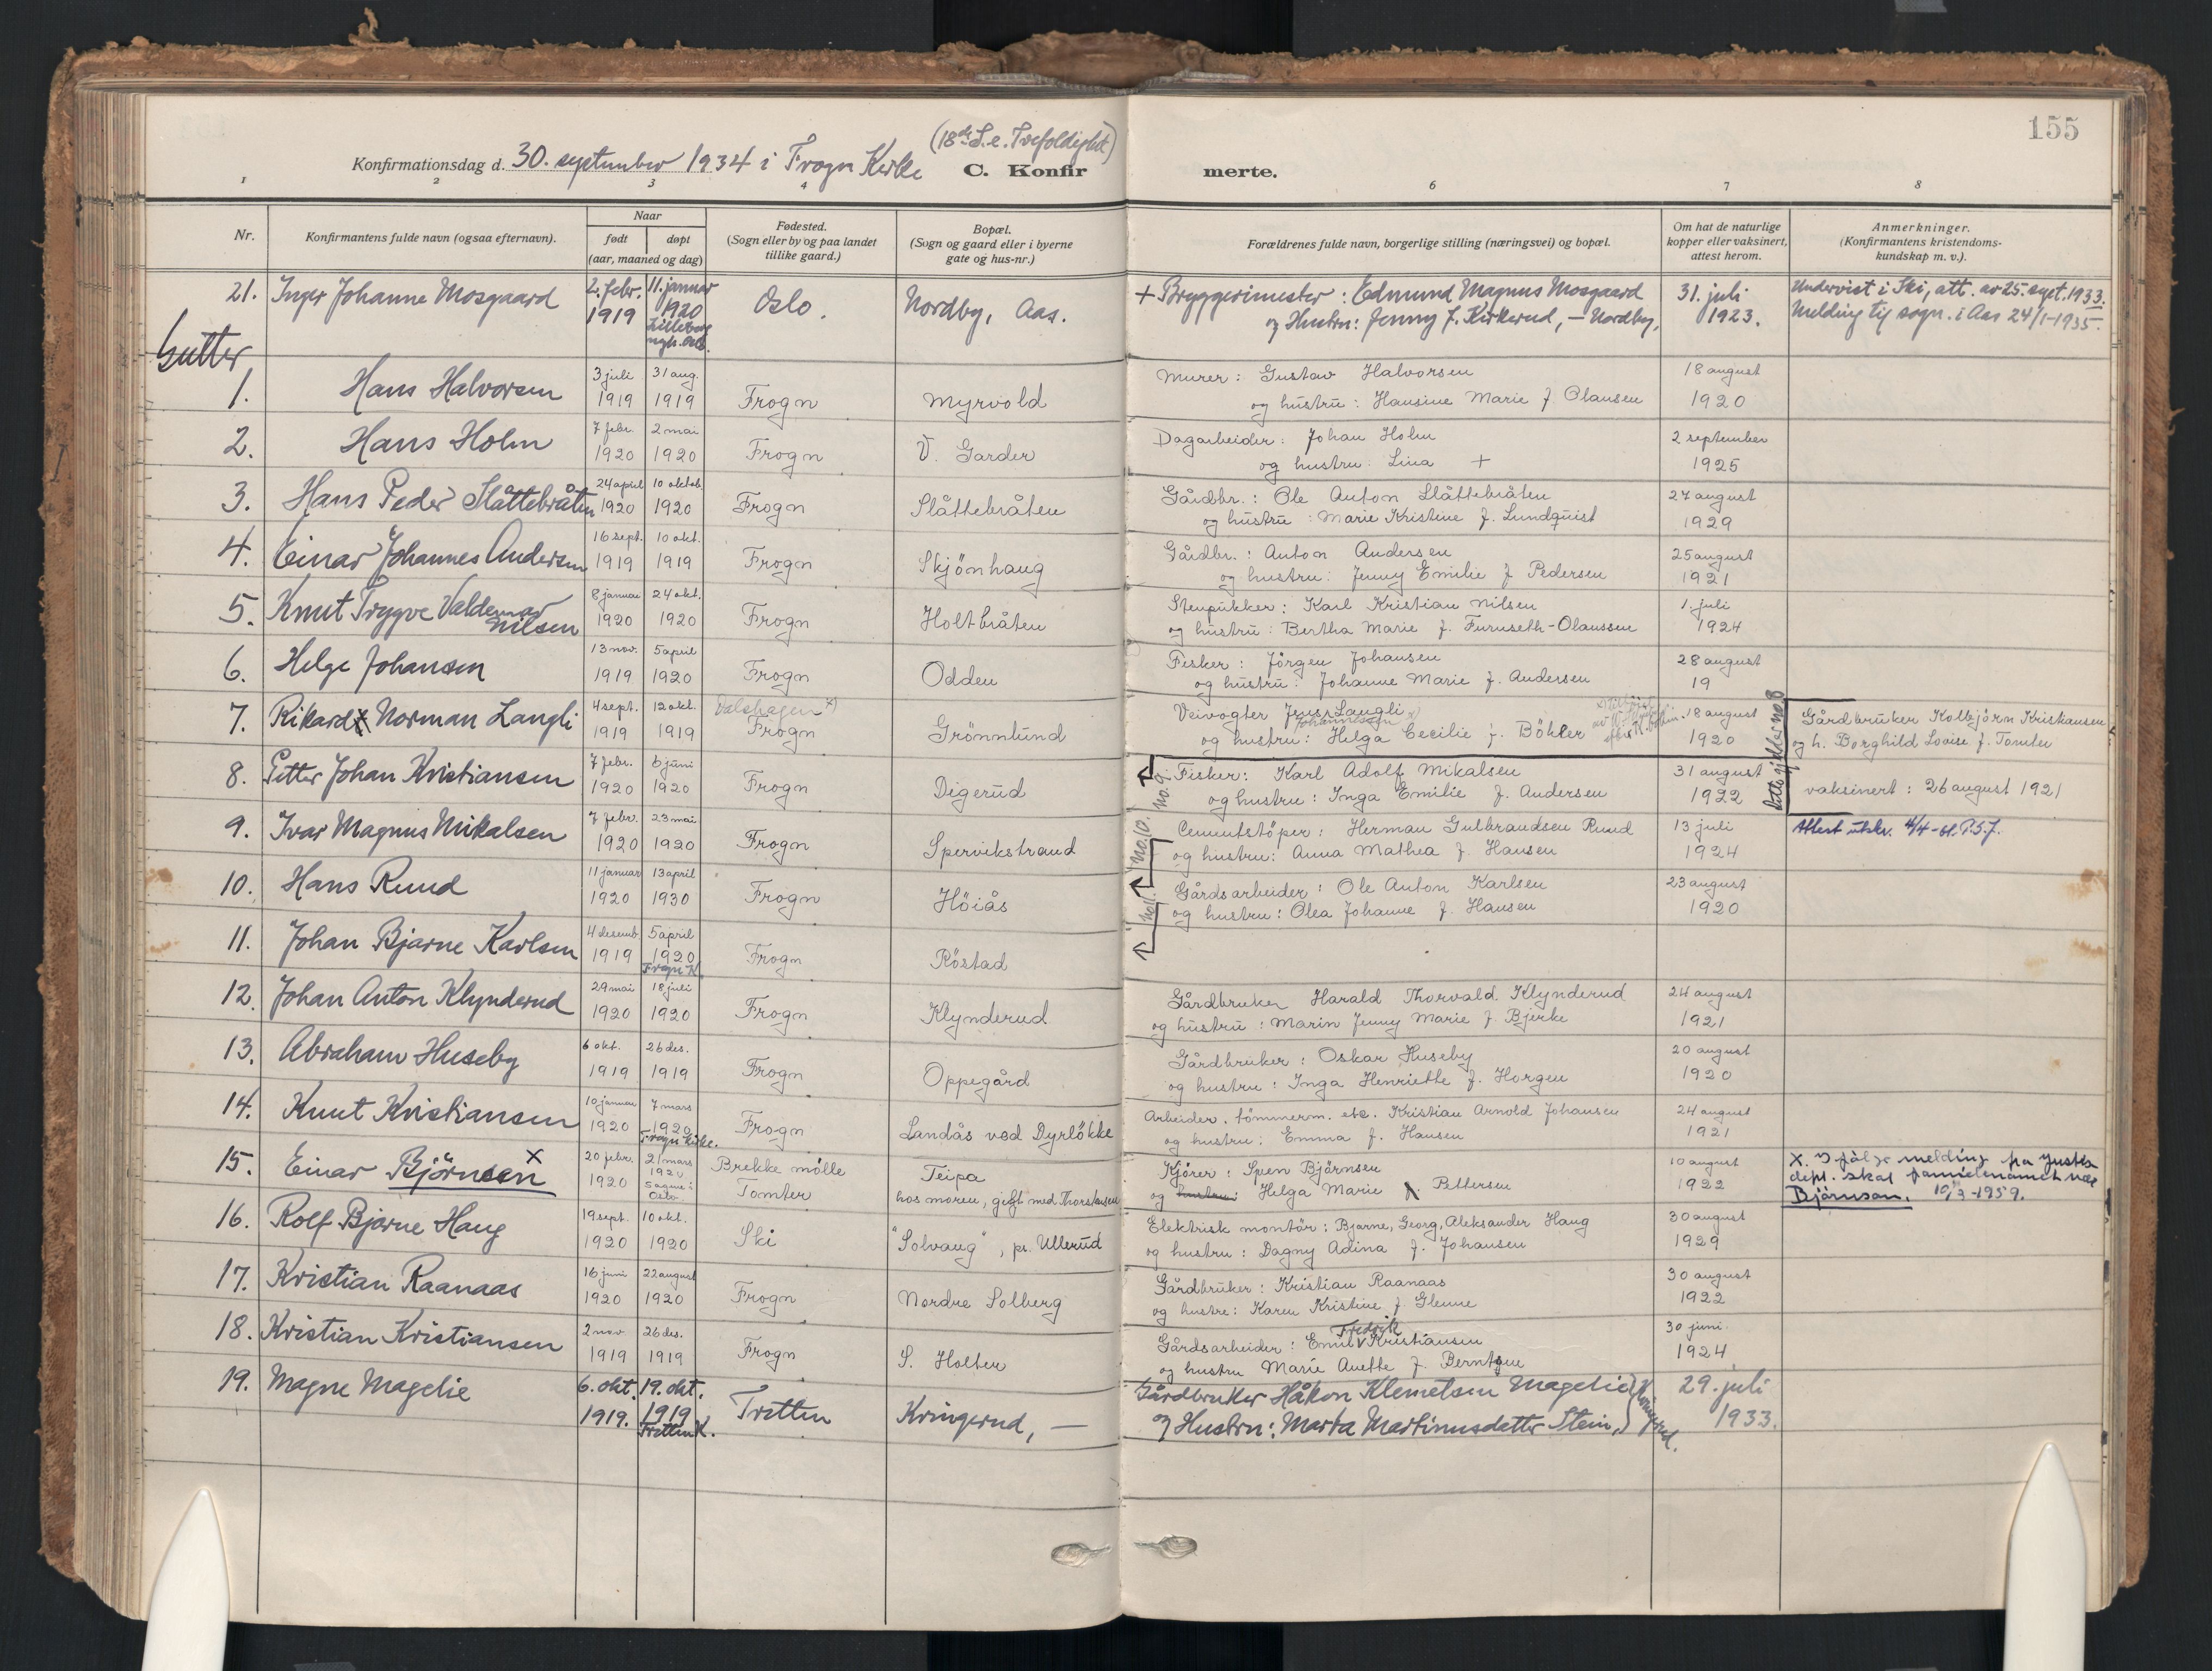 155
(18de S. e. Trefoldighet)
Konfirmationsdag d. 30. september 1934 i Frogn Kirke C. Konfirmerte.
1 2 3 4 6 7 8
Nr. Konfirmantens fulde navn (ogsaa efternavn). Naar født døpt (aar, maaned og dag) Fødested. (Sogn eller by og paa landet tillike gaard.) Bopæl. (Sogn og gaard eller i byerne gate og hus-nr.) Forældrenes fulde navn, borgerlige stilling (næringsvei) og bopæl. Om hat de naturlige kopper eller vaksinert, attest herom. Anmerkninger. (Konfirmantens kristendoms-kundskap m. v.).
21. Inger Johanne Mosgaard 2. febr. 1919 11. januar 1920 Oslo. Nordby, Aas. + Bryggerimester: Edmund Magnus Mosgaard 31. juli 1923. Undervist i Ski, att. av 25. sept. 1933.
og Hustru: Jenny f. Kirkerud, — Nordby, Melding til sogn. i Aas 24/1-1935.
Gutter
1. Hans Halvorsen 3 juli 1919 31 aug. 1919 Frogn Myrvold Murer: Gustav Halvorsen 18 august 1920
og hustru: Hansine Marie f Olausen
2. Hans Holm 7 febr. 1920 2 mai 1920 Frogn V. Garder Dagarbeider: Johan Holm 2 september 1925
og hustru. Lina +
3. Hans Peder Slåttebråten 24 april 1920 10 oktob. 1920 Frogn Slåttebråten Gårdbr.: Ole Anton Slåttebråten 27 august 1929
og hustru: Marie Kristine f. Lundquist
4. Einar Johannes Andersen 16 sept. 1919 10 okt. 1919 Frogn Skjönhaug Gårdbr.: Anton Andersen 25 august 1921
og hustru: Jenny Emilie f Pedersen
5. Knut Trygve Valdemar Nilsen 8 januar 1920 24 okt. 1920 Frogn Holtbråten Stenpukker: Karl Kristian Nilsen 1. juli 1924
og hustru: Bertha Marie f. Furuseth-Olaussen
6. Helge Johansen 13 nov. 1919 5 april 1920 Frogn Odden Fisker: Jörgen Johansen 28 august 19
og hustru: Johanne Marie f. Andersen
7. Rikard Norman Langli 4 sept. 1919 12 okt. 1919 Valshagen x) Frogn Grönnlund Veivogter Jens Johannessen Langli 18 august 1920 Gårdbruker Kolbjörn Kristiansen
og hustru: Helga Cecilie f. Böhler og h. Borghild Lovise f. Tomter
dette gjelder no. 8
8. Petter Johan Kristiansen 7 febr. 1920 6 juni 1920 Frogn Digerud no. 9. Fisker: Karl Adolf Mikalsen 31 august 1922 vaksinert: 26 august 1921
og hustru: Inga Emilie f. Andersen
9. Ivar Magnus Mikalsen 7 febr. 1920 23 mai 1920 Frogn Spervikstrand no. 10. Cementstöper: Herman Gulbrandsen Ruud 13 juli 1924 Attest utskr. 4/4-61. P.S.J.
og hustru: Anna Mathea f Hansen
10. Hans Ruud 11 januar 1920 13 april 1930 Frogn Höiås no 11. Gårdsarbeider: Ole Anton Karlsen 23 august 1920
og hustru: Olea Johanne f. Hansen
11. Johan Bjarne Karlsen 4 desemb. 1919 5 april 1920 Frogn K. Frogn Röstad
12. Johan Anton Klynderud 29 mai 1920 18 juli 1920 Frogn Klynderud Gårdbruker Harald Thorvald Klynderud 24 august 1921
og hustru: Marin Jenny Marie f. Bjerke
13. Abraham Huseby 6 okt. 1919 26 des. 1919 Frogn Oppegård Gårdbruker: Oskar Huseby 20 august 1920
og hustru: Inga Henriette f. Horgen
14. Knut Kristiansen 10 januar 1920 7 mars 1920 Frogn kirke. Frogn Landås ved Dyrlökke Arbeider, tömmerm. etc. Kristian Arnold Johansen 24 august 1921
og hustru: Emma f. Hansen
15. Einar Björnsen x 20 febr. 1920 21 mars 1920 Sagene i Oslo Brekke mölle Tomter Teipa hos moren, gift med Thorstensen Kjörer: Sven Björnsen 10 august 1922 X. Ifølge melding fra Justis
og hustru: Helga Marie f. Pettersen dept. skal familienamnet være
Björnson. 10/3-1959.
16. Rolf Bjarne Haug 19. sept. 1920 10 okt. 1920 Ski "Solvang", pr. Ullerud Elektrisk montör: Bjarne, Georg, Aleksander Haug 30 august 1929
og hustru: Dagny Adina f. Johansen
17. Kristian Raanaas 16 juni 1920 22 august 1920 Frogn Nordre Solberg Gårdbruker: Kristian Raanaas 30 august 1922
og hustru: Karen Kristine f Glenne
18. Kristian Kristiansen 2 nov 1919 26 des. 1919 Frogn S. Holter Gårdsarbeider: Emil Fredrik Kristiansen 30 juni 1924
og hustru Marie Anette f. Berntsen
19. Magne Magelie 6. okt. 1919. 19. okt. 1919 Tretten K. Tretten Kringerud, — Gårdbruker Håkon Klemetsen Magelie 29. juli 1933.
og Hustru: Marta Martinusdatter Stein, Kringerud.